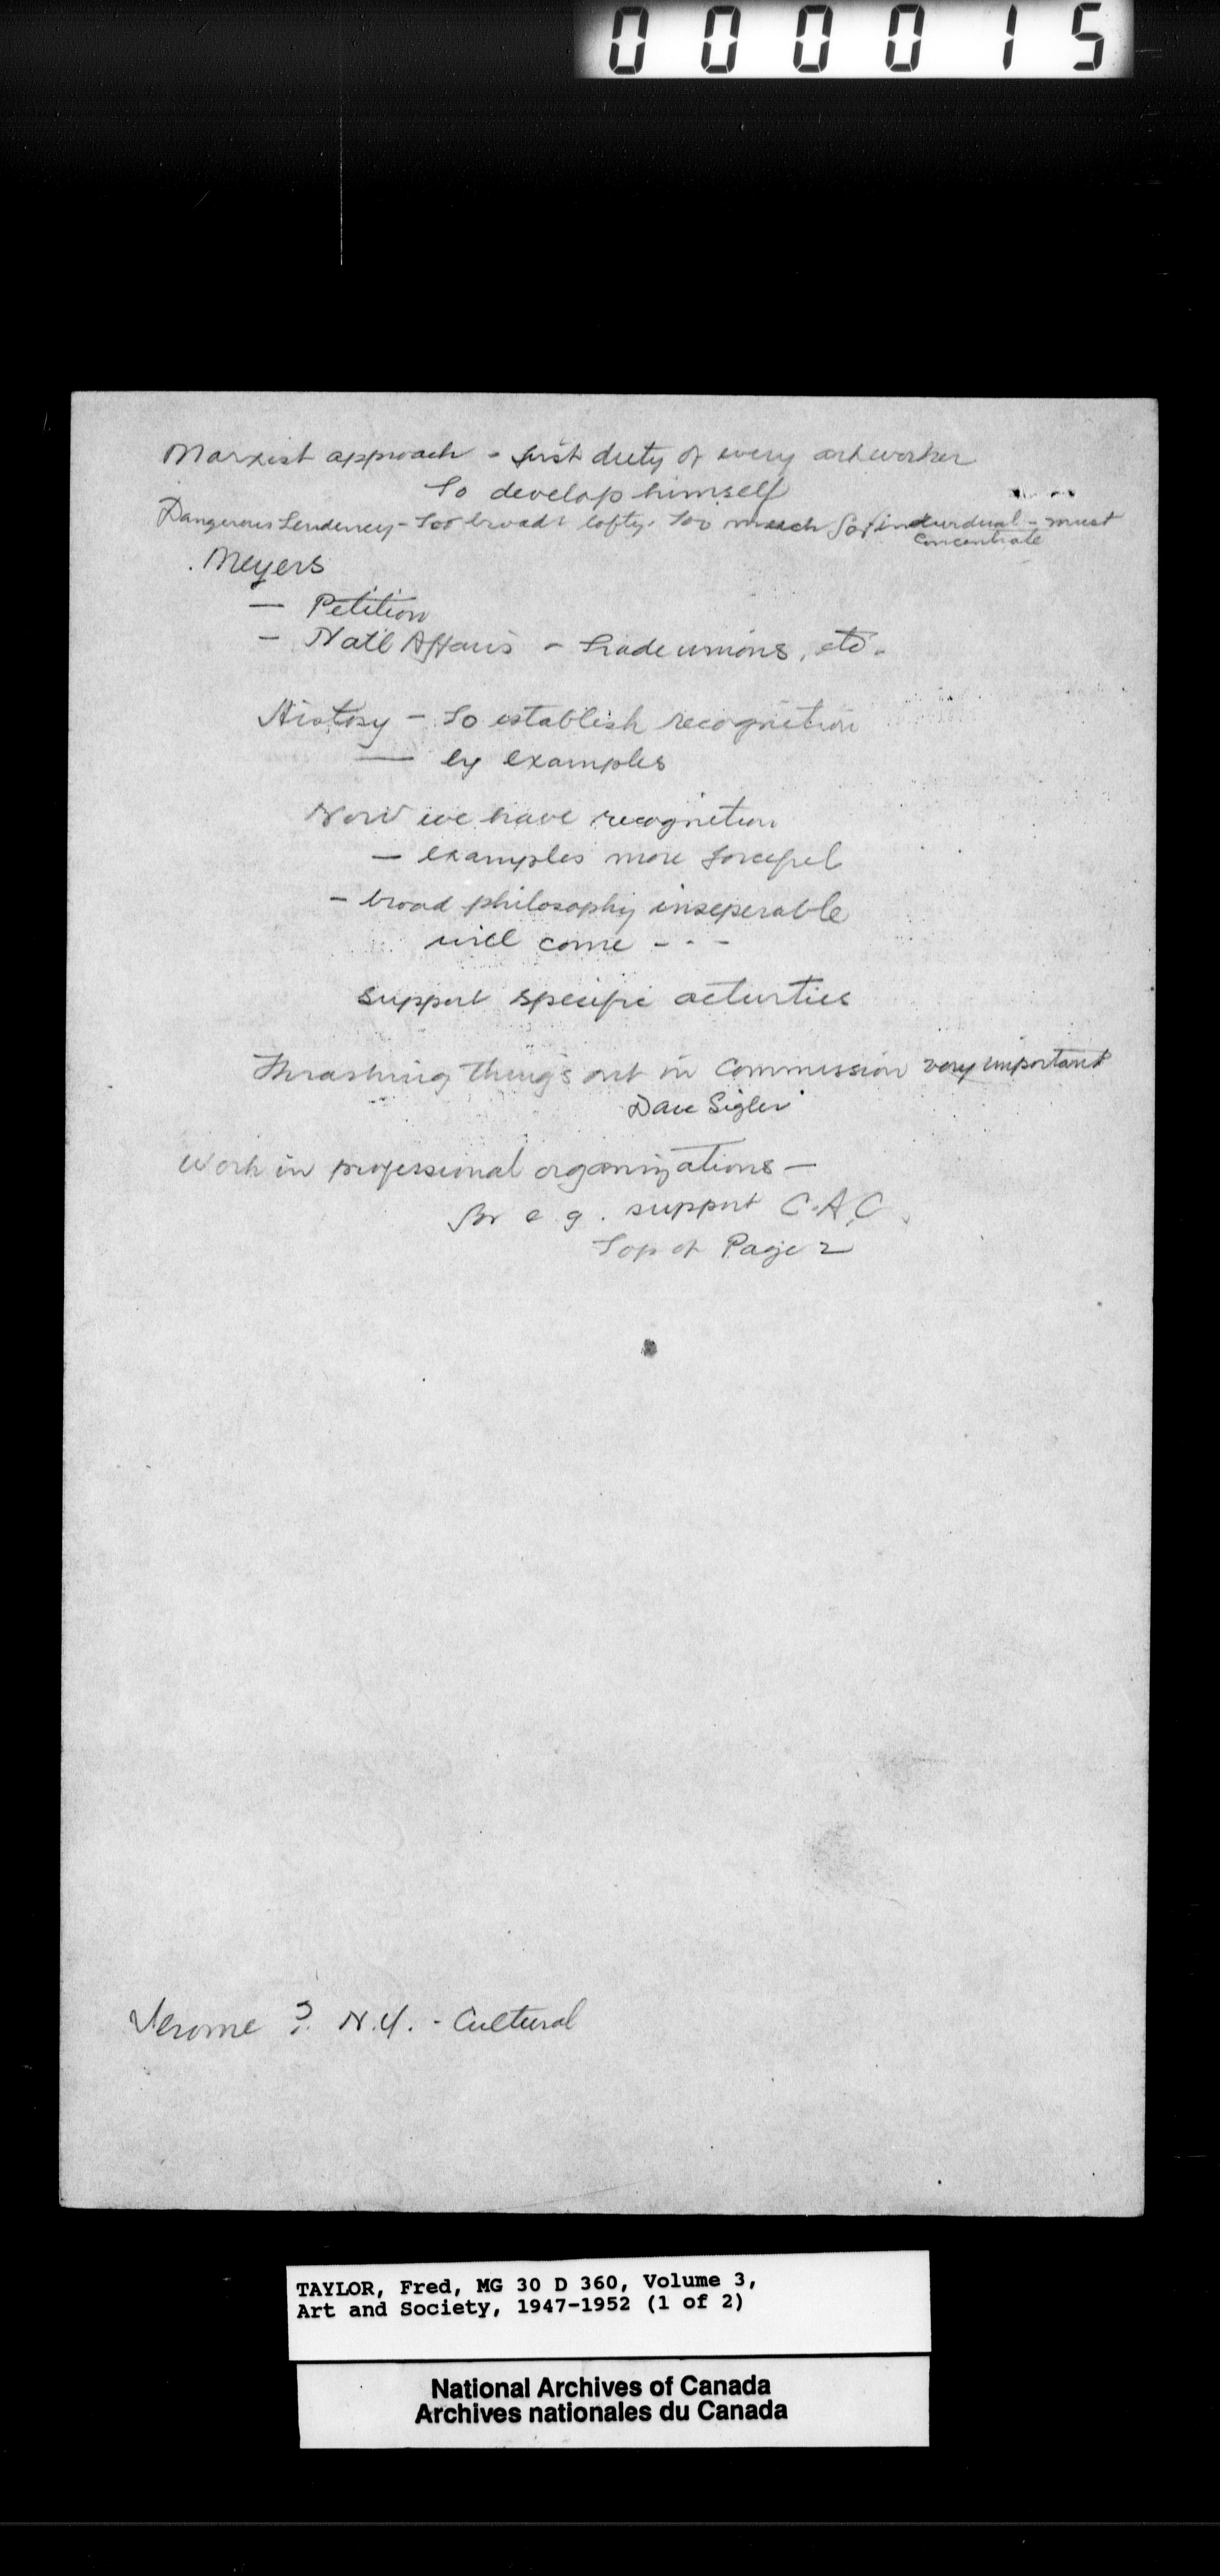 000015
Marxist approach - first duty of every artworker
to develop himself
Dangerous tendency - too broad & lofty. too much for individual - must
concentrate
Meyers
— Petition
- Nat'l Affairs - trade unions, etc.
History - to establish recognition
— by examples
Now we have recognition
— examples more forceful
- broad philosophy inseperable
will come - - -
support specific activities
Thrashing things out in commission very important
Dave Sigler
Work in professional organizations —
for e.g. support C.A.C.
Top of Page 2
Jerome ? N.Y. - Cultural
TAYLOR, Fred, MG 30 D 360, Volume 3,
Art and Society, 1947-1952 (1 of 2)
National Archives of Canada
Archives nationales du Canada